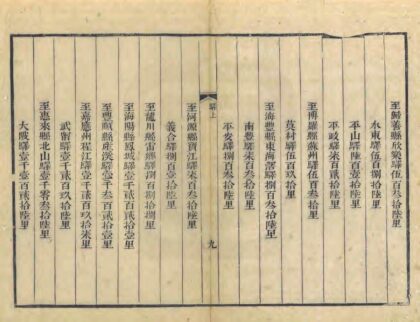 至歸善縣欣樂驛伍百叁拾陸里
水東驛伍百捌拾陸里
平山驛陸百壹拾陸里
平政驛柒百貳拾陸里
至博羅縣蘇州驛伍百叁拾里
莫村驛伍百玖拾里
至海豐縣東海滘驛捌百叁拾陸里
南豐驛柒百捌拾陸里
平安驛捌百叁拾陸里
驛上
九
至河源縣寶江驛柒百叁拾陸里
義合驛捌百壹拾陸里
至龍川縣雷鄉驛捌百捌拾捌里
至海陽縣鳳城驛壹千貳百貳拾壹里
至豐順縣產溪驛壹千壹百貳拾陸里
至嘉應州程江驛壹千貳百玖拾柒里
武甯驛壹千貳百玖拾陸里
至惠來縣北山驛壹千零叁拾陸里
大陂驛壹千壹百貳拾陸里